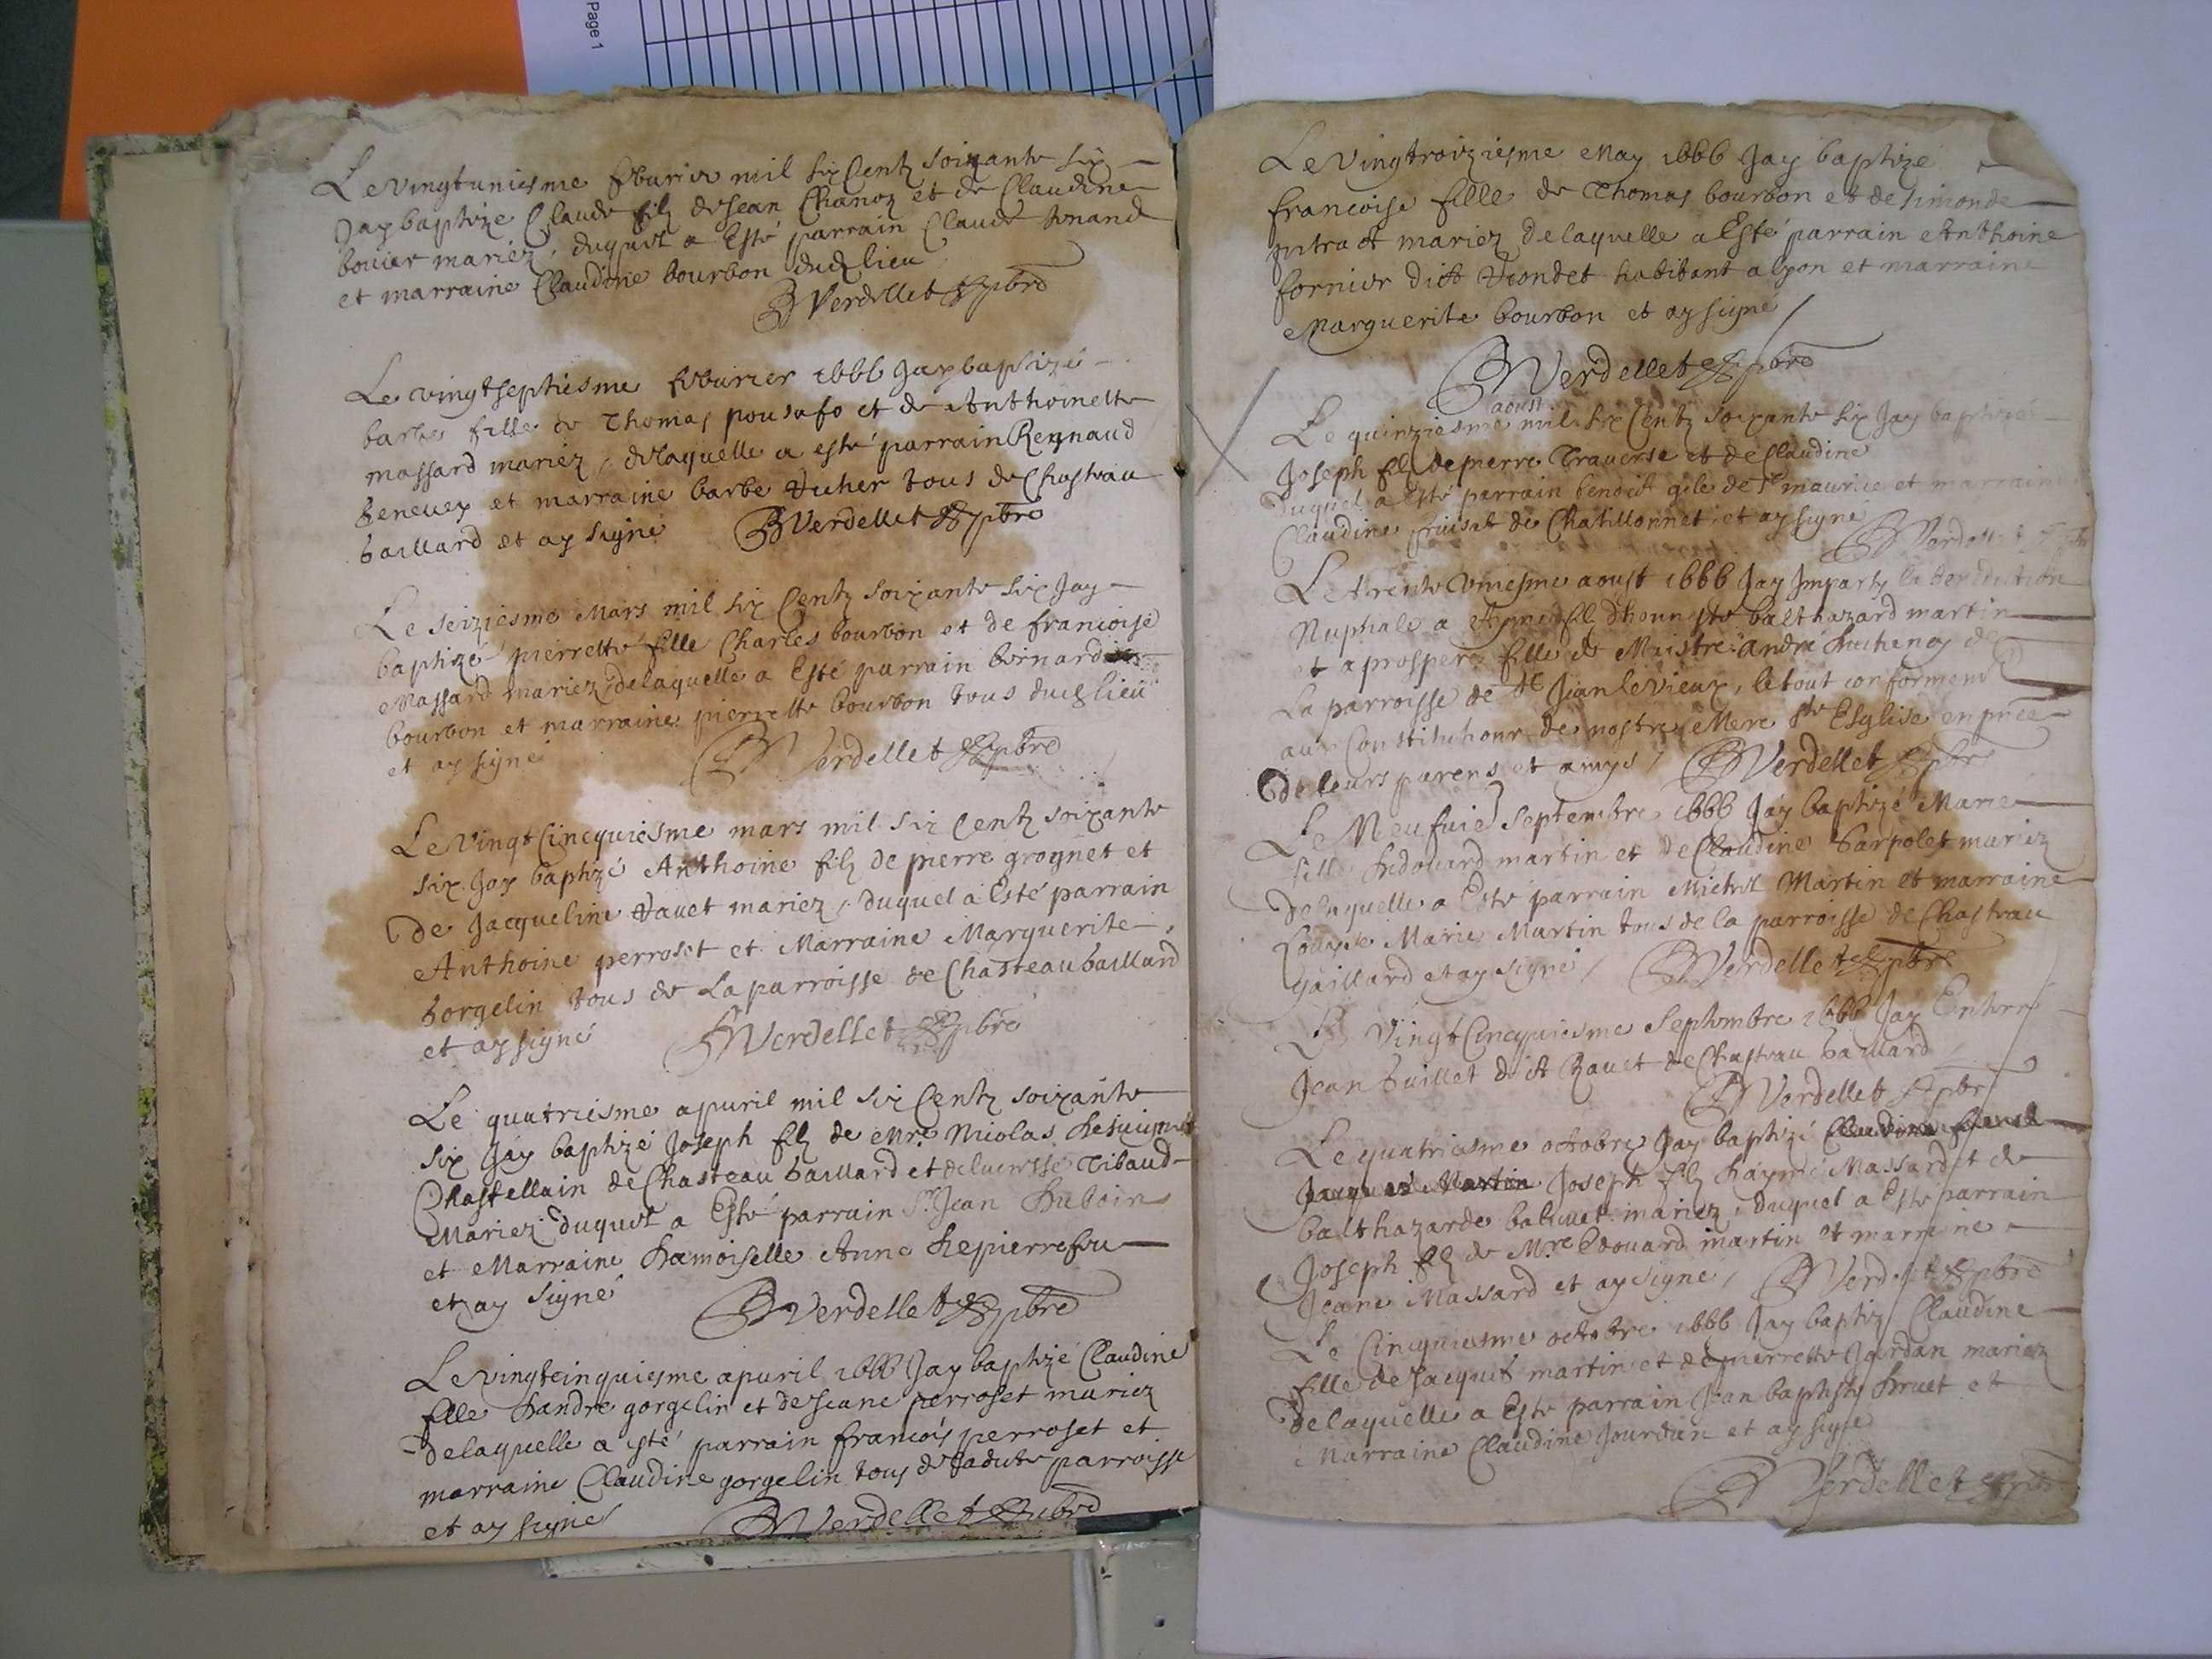 Page 1
Le vingtuniesme feburier mil six Centz soixante six
Jay baptize Claude filz de Jean Chanoz et de Claudine
bouier mariez, duquel a Esté parrain Claude
et marraine Claudine bourbon dud lieu
Verdellet pbre
Le vingtseptiesme feburier 1666 Jay baptizé
barbe fille de Thomas et de Anthoinette
massard mariez, delaquelle a esté parrain Reynaud
et marraine barbe tous de Chasteau
Gaillard et ay signé Verdellet pbre
Le seiziesme Mars mil six Centz soixante six Jay
baptizé pierrette fille Charles bourbon et de francoise
Massard mariez, delaquelle a Esté parrain bernard
bourbon et marraine pierrette bourbon tous dud lieu
et ay signé Verdellet pbre
Le Vingt Cincquiesme mars mil six Centz soixante
six Jay baptizé Anthoine filz de pierre grognet et
de Jacqueline mariez, duquel a Esté parrain
Anthoine perroset et Marraine Marguerite
Gorgelin tous de La parroisse de Chasteaugaillard
et ay signé Verdellet pbre
Le quatriesme apuril mil six Centz soixante
six Jay baptizé Joseph filz de Mre Nicolas
Chastellain de Chasteau Gaillard et de Tibaud
Mariez duquel a Esté parrain Sr Jean Duboin
et Marraine Damoiselle Anne
et ay signé Verdellet pbre
Le vingtcinquiesme apuril 1666 Jay baptizé Claudine
fille Dandre gorgelin et de Jeane perroset mariez
delaquelle a esté parrain francois perroset et
marraine Claudine gorgelin tous de parroisse
et ay signé Verdellet pbre
Le Vingtroiziesme May 1666 Jay baptizé
francoise fille de Thomas bourbon et de simonde
mariez delaquelle a Esté parrain Anthoine
fornier dict habitant a lyon et marraine
Marguerite bourbon et ay signé
Verdellet pbre
aoust
Le quinziesme mil six Centz soixante six Jay baptizé
Joseph filz de pierre Trauerse et de Claudine
Duquel a Esté parrain benoict de St maurice et marraine
Claudine de Chatillonnet, et ay signé
Verdellet
Le trente Vniesme aoust 1666 Jay Imparty la benediction
Nuptiale a filz dhonneste balthazard martin
et a prospere fille de Maistre andré de
La parroisse de St Jean le Vieux, le tout conformem
aux Constitutions de nostre Mere Ste Esglise en pnce
de leurs parens et amys / Verdellet pbre
Le Neufuie Septembre 1666 Jay baptizé Marie
fille Dedouard martin et de Claudine mariez
Delaquelle a Esté parrain Michel Martin et marraine
Louyse Marie Martin tous de la parroisse de Chasteau
gaillard et ay signé / Verdellet pbre
Le Vingt Cincquiesme Septembre 1666 Jay Enterré
Jean dict de Chasteau Gaillard
Verdellet pbre
Le quatriesme octobre Jay baptizé Claudine
Jacques Martin Joseph filz Massard et de
balthazarde mariez, duquel a Esté parrain
Joseph filz de Mre Edouard martin et marraine
Jeane Massard et ay signé / Verdellet pbre
Le Cincquiesme octobre 1666 Jay baptizé Claudine
fille de Jacques martin et de pierrette Jordan mariez
Delaquelle a Esté parrain Jean baptiste et
Marraine Claudine Jourdan et ay signé
Verdellet pbre